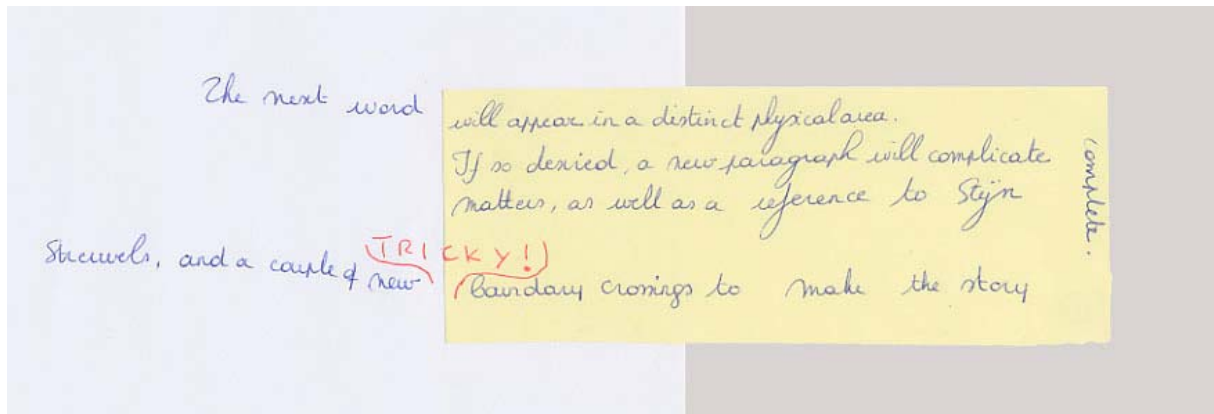 The next word will appear in a distinct physical area.
If so desired, a new paragraph will complicate
matters, as well as a reference to Stijn
Streuvels, and a couple of new boundary crossings to make the story
complete.
TRICKY!